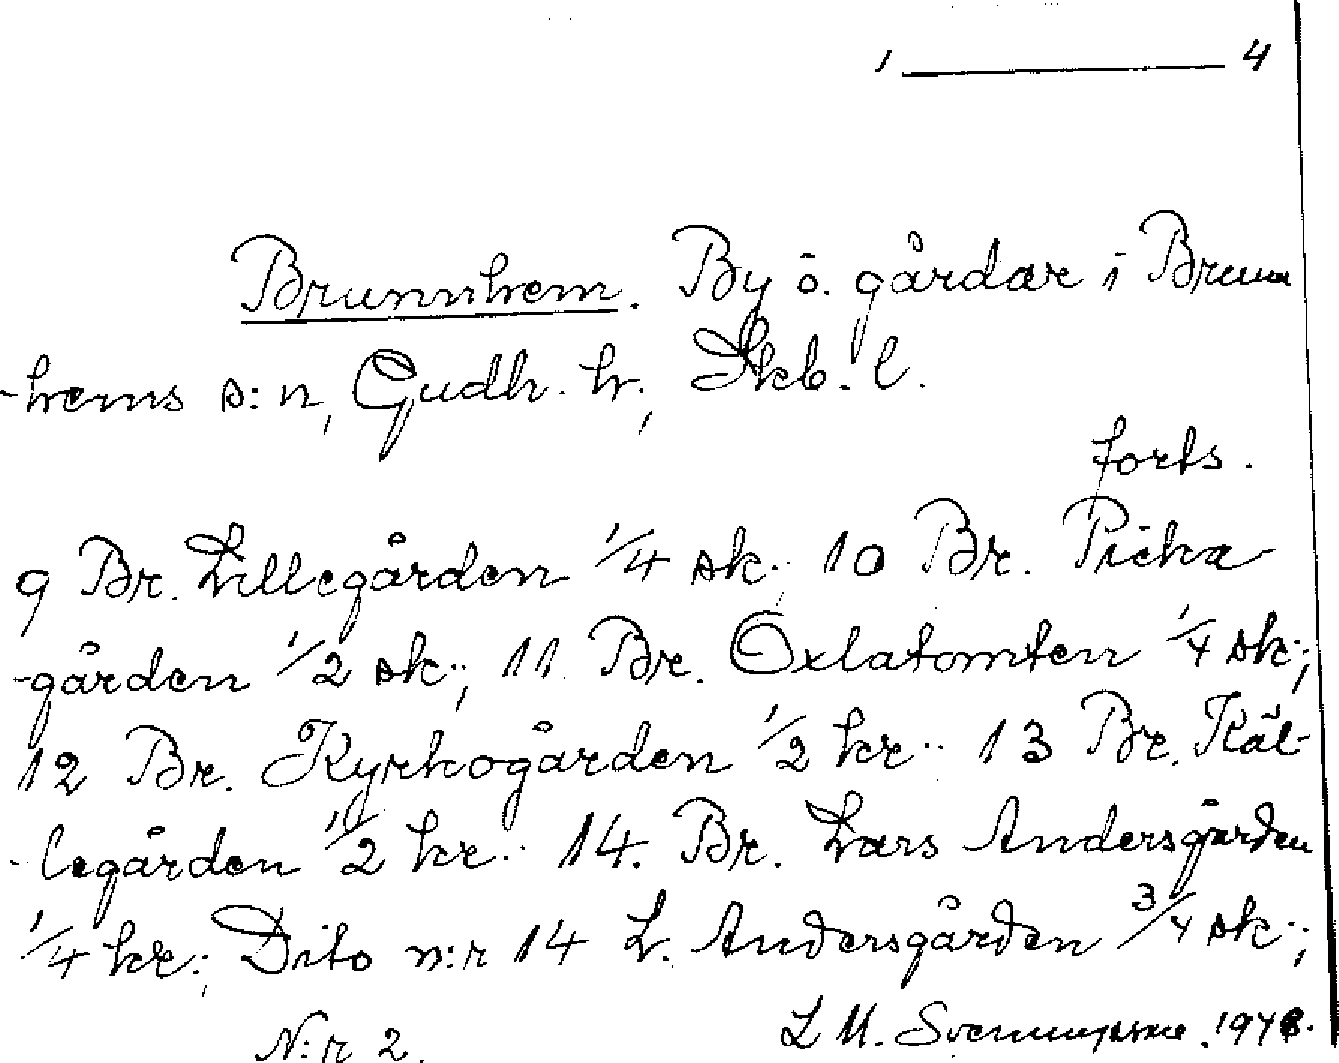 1 ———— 4
Brunnhem. By o. gårdar i Brunn
-hems s:n, Gudh. hr., Skb. l.
forts.
9 Br. Lillegården 1/4 sk.; 10 Br. Picka
-gården 1/2 sk.; 11 Br. Oxlatomten 1/4 sk.;
12 Br. Kyrkogården 1/2 kr.. 13 Br. Käl-
-legården 1/2 kr.. 14. Br. Lars Andersgården
1/4 kr.; Dito n:r 14 L. Andersgården 3/4 sk.;
N:r 2. L M.